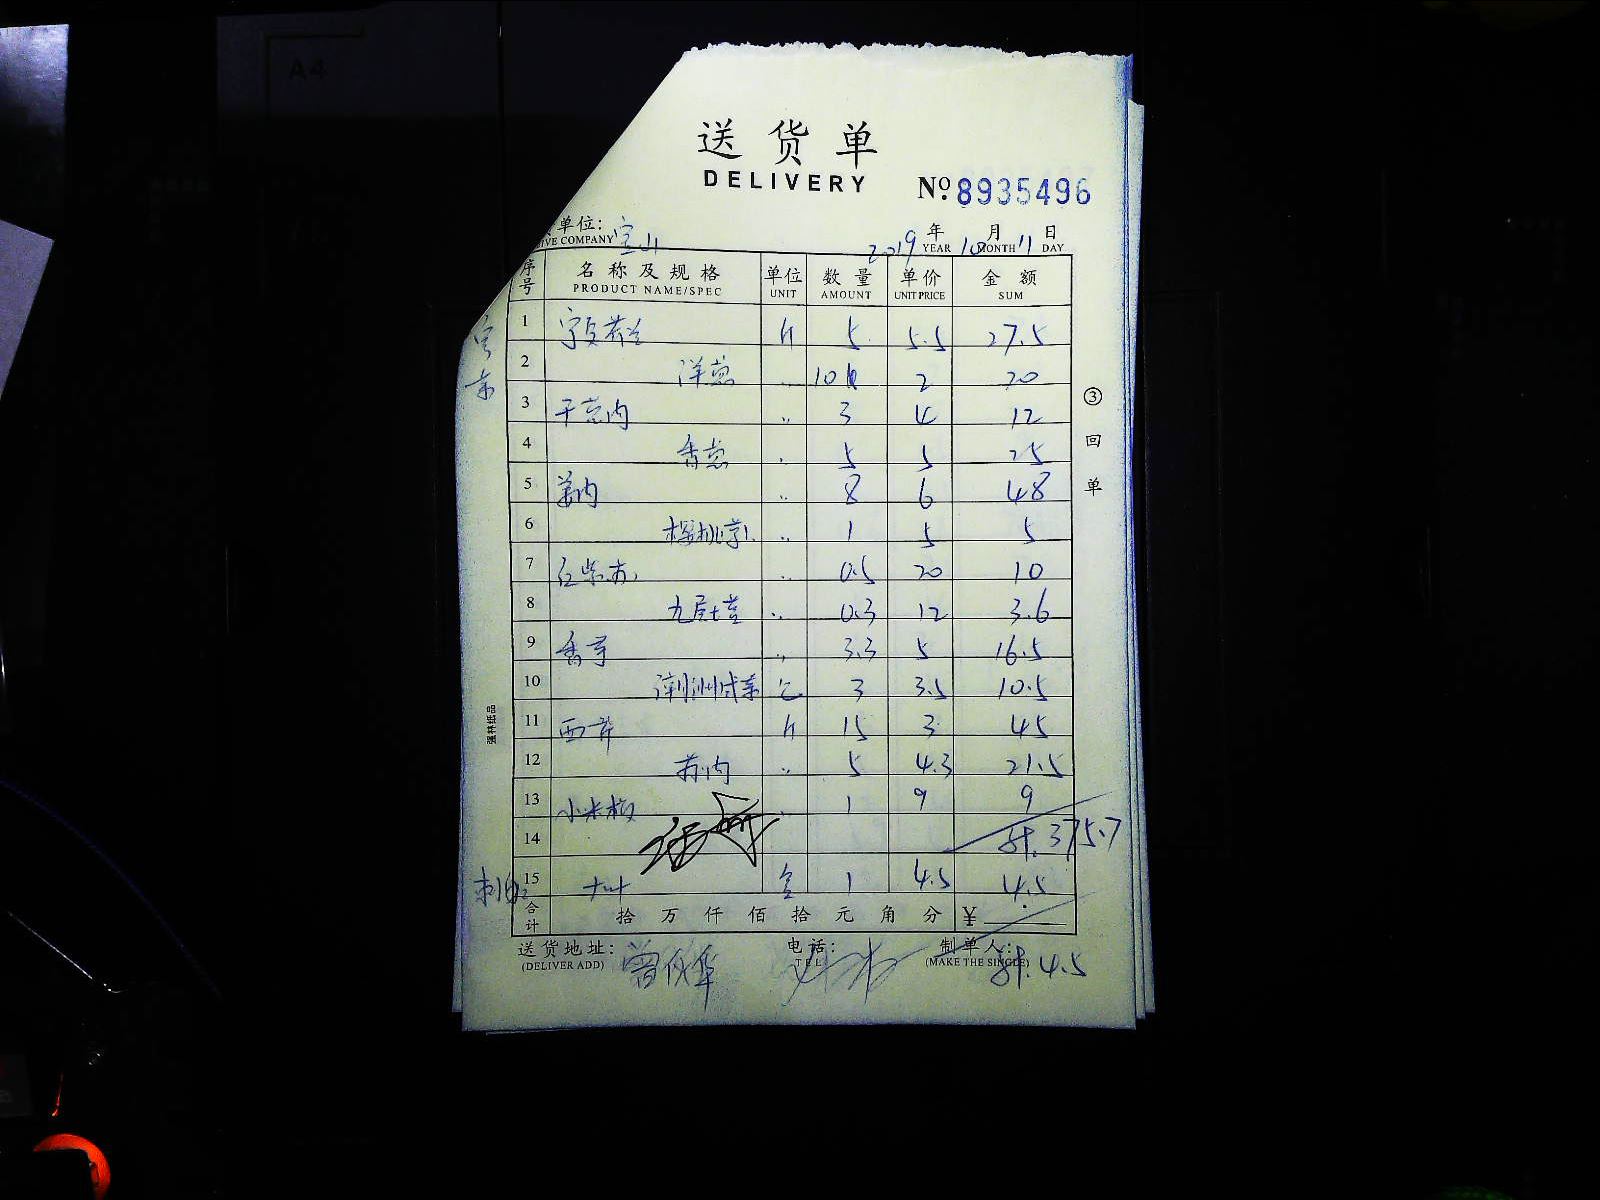 A4
送货单
DELIVERY
No. 8935496
单位: 宝山
IVE COMPANY
2019 年 10 月 11 日
YEAR MONTH DAY
序号 名称及规格 单位 数量 单价 金额
PRODUCT NAME/SPEC UNIT AMOUNT UNIT PRICE SUM
1 5 5.5 27.5
2 洋葱 〃 10 2 20
3 干葱肉 〃 3 4 12
4 香葱 〃 5 5 25
5 姜肉 〃 8 6 48
6 〃 1 5 5
7 红紫苏 〃 0.5 20 10
8 九层士 〃 0.3 12 3.6
9 香芋 〃 3.3 5 16.5
10 潮州咸菜 包 3 3.5 10.5
11 西芹 斤 15 3 45
12 〃 5 4.3 21.5
13 小米椒 〃 1 9 9
14 计. 375.7
15 1 4.5 4.5
合计 拾 万 仟 佰 拾 元 角 分 ¥
送货地址: 电话: 制单人:
(DELIVER ADD) TEL (MAKE THE SINGLE)
计. 4.5
③回单
强林纸品